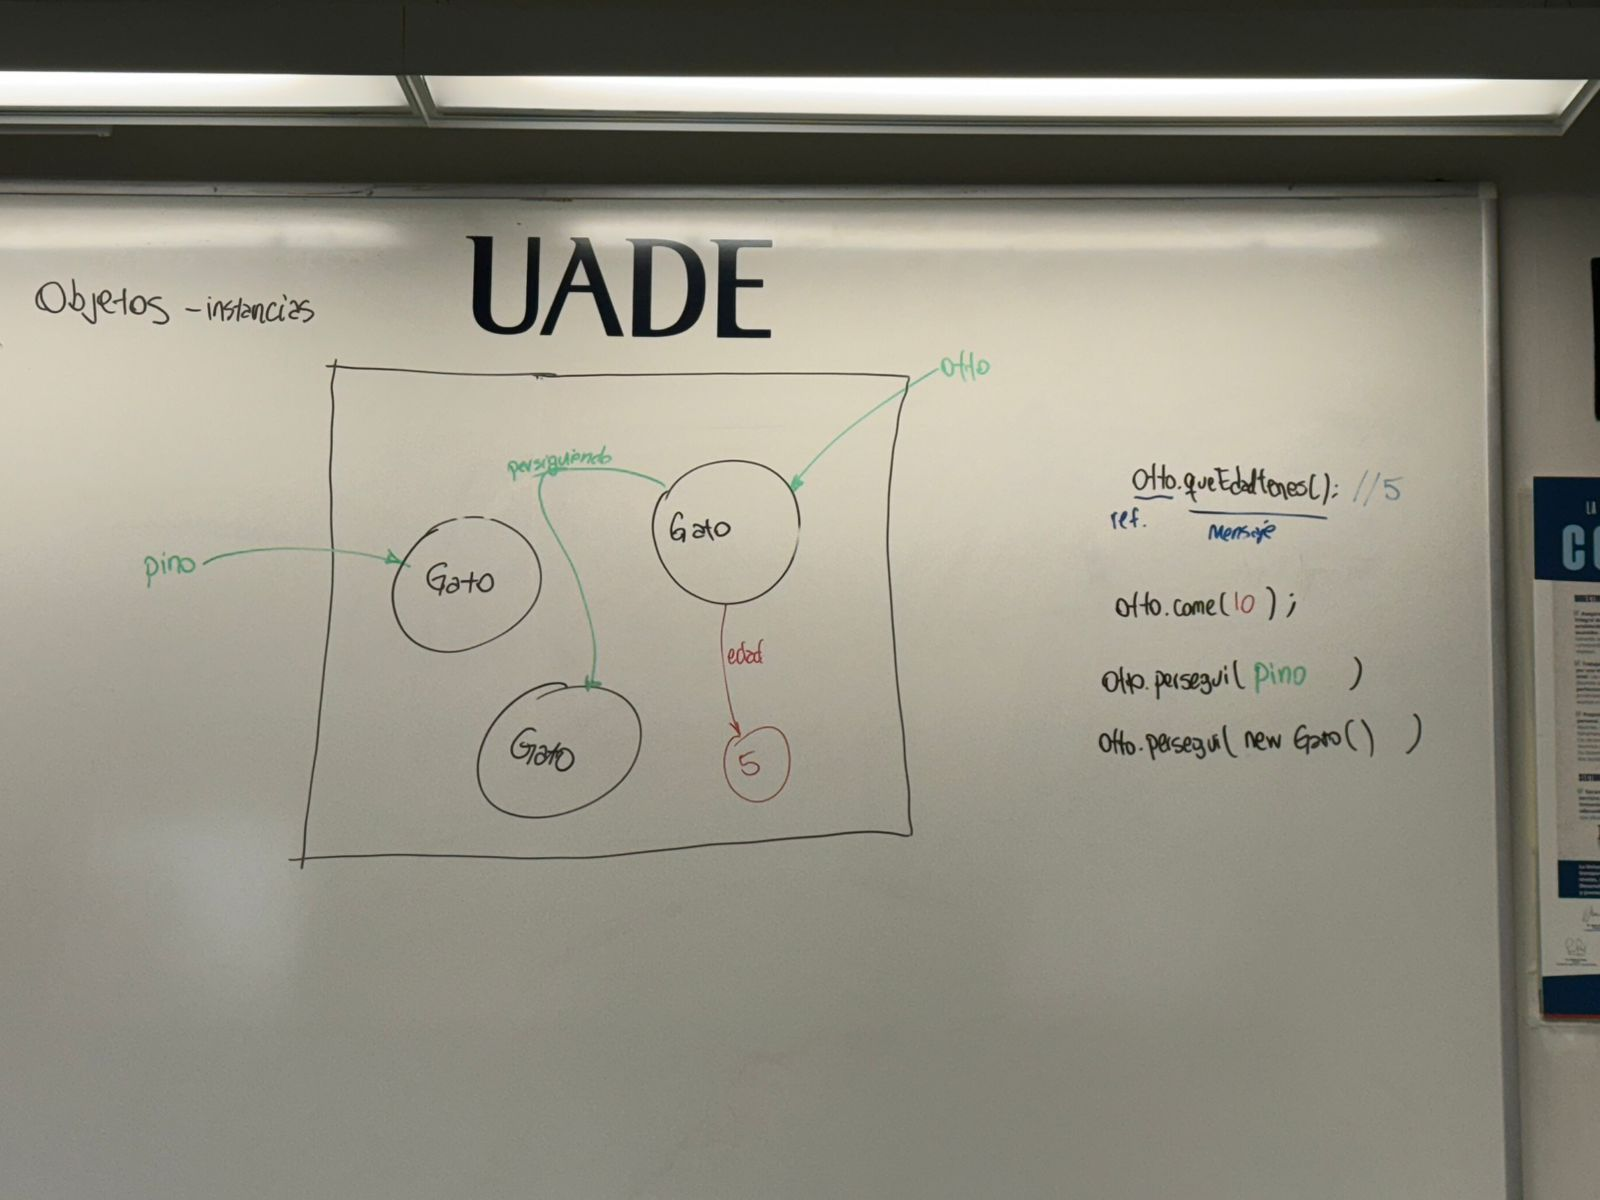 UADE
Objetos - instancias
otto
persiguiendo
Gato
pino
Gato
edad
Gato
5
Otto.queEdadtenes(); //5
ref.
Mensaje
otto.come(10);
otto.perseguí(pino)
otto.perseguí(new Gato())
LA
CO